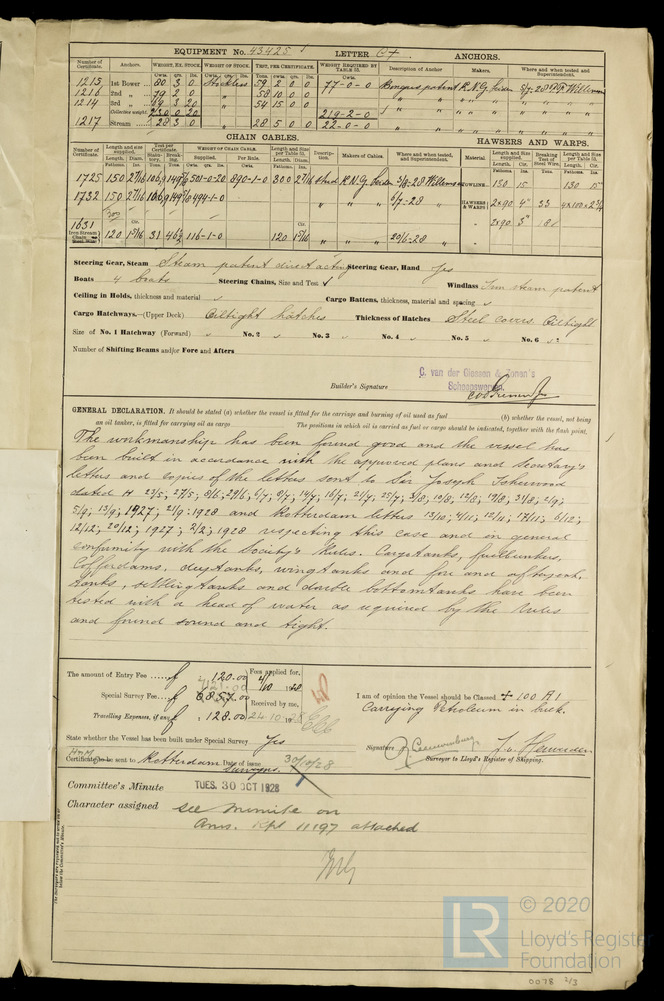 EQUIPMENT No. 43425 LETTER G+ ANCHORS.
Number of Certificate. Anchors. WEIGHT, EX. STOCK. WEIGHT OF STOCK. TEST, PER CERTIFICATE. WEIGHT REQUIRED BY TABLE 53. Description of Anchor Makers. Where and when tested and Superintendent.
1215 1st Bower 80 3 0 Stockless 59 2 0 0 77-0-0
1216 2nd " 79 2 0 " 58 10 0 0
1214 3rd " 69 3 20 " 54 15 0 0
Collective weight 230 0 20 219-2-0
1217 Stream 28 3 0 " 28 5 0 0 22-0-0
CHAIN CABLES. HAWSERS AND WARPS.
Number of Certificate. Length and size supplied. Test per Certificate. WEIGHT OF CHAIN CABLE. Length and Size per Table 53. Description. Makers of Cables. Where and when tested, and Superintendent. Material Length and Size supplied. Breaking Test of Steel Wire. Length and Size per Table 53.
1725 150 2 7/16 501-0-20 890-1-0 300 2 7/16 Stud TOWLINE 130 15 130 15"
1732 150 2 7/16 494-1-0 6/7-28 HAWSERS & WARPS 2x90 4" 33
1631
Iron Stream Chain 120 1 5/16 31 46 1/2 116-1-0 120 1 5/16 " " " 20/6-28 " " 2x90 3" 18
Steering Gear, Steam Steam patent direct acting Steering Gear, Hand Yes
Boats 4 boats Steering Chains, Size and Test Windlass Iron steam patent
Ceiling in Holds, thickness and material Cargo Battens, thickness, material and spacing
Cargo Hatchways.—(Upper Deck) Oiltight hatches Thickness of Hatches Steel covers. Oiltight
Size of No. 1 Hatchway (Forward) No. 2 No. 3 No. 4 No. 5 No. 6
Number of Shifting Beams and/or Fore and Afters
C. van der Giessen & Zonen's
Scheepswerven
Builder's Signature
GENERAL DECLARATION. It should be stated (a) whether the vessel is fitted for the carriage and burning of oil used as fuel (b) whether the vessel, not being
an oil tanker, is fitted for carrying oil as cargo The positions in which oil is carried as fuel or cargo should be indicated, together with the flash point,
The workmanship has been found good and the vessel has
been built in accordance with the approved plans and Secretary's
letters and copies of the letters sent to Sir Joseph Isherwood
dated H 23/5; 27/5; 8/6; 29/6; 6/7; 8/7; 14/7; 16/7; 21/7; 25/7; 3/8; 19/8; 31/8; 2/9;
5/9; 13/9; 1927; 21/9; 1928 and Rotterdam letters 13/10; 4/11; 12/11; 17/11; 6/12;
12/12; 20/12; 1927; 2/2; 1928 respecting this case and in general
conformity with the Society's Rules. Cargotanks, fuelbunkers,
Cofferdams, deeptanks, wingtanks and fore and afterpeak
tanks, settlingtanks and double bottomtanks have been
tested with a head of water as required by the Rules
and found sound and tight.
The amount of Entry Fee f 120.00 Fees applied for,
Special Survey Fee f 4/10 1928
Received by me,
Travelling Expenses, if any f 128.00 24.10.1928
I am of opinion the Vessel should be Classed + 100 A1
Carrying Petroleum in bulk.
State whether the Vessel has been built under Special Survey Yes
Certificate to be sent to Rotterdam Surveyors. Date of issue 30/10/28
Signature
Surveyor to Lloyd's Register of Shipping.
Committee's Minute TUES. 30 OCT 1928
Character assigned See Minute on
Ams. Rpt 11197 attached
LR
© 2020
Lloyd's Register
Foundation
0078 2/3